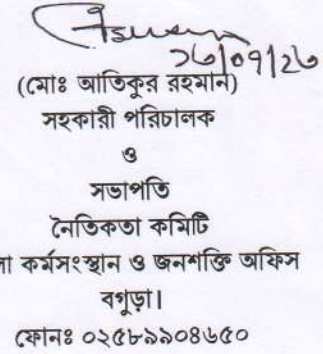 ২৬/০৭/২৬
(মোঃ আতিকুর রহমান)
সহকারী পরিচালক
ও
সভাপতি
নৈতিকতা কমিটি
কর্মসংস্থান ও জনশক্তি অফিস
বগুড়া।
ফোনঃ ০২৫৮৯৯০৪৬৫০